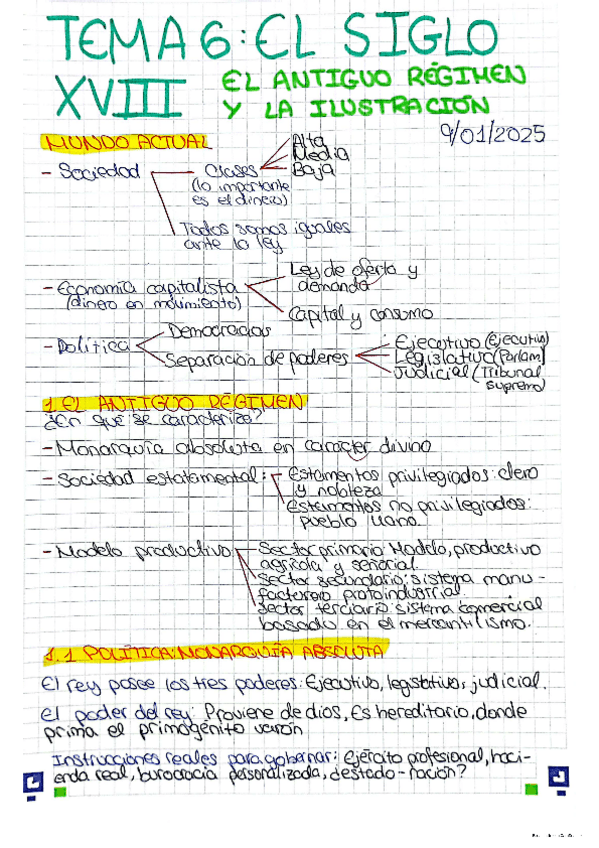 TEMA 6: EL SIGLO
XVIII EL ANTIGUO RÉGIMEN
Y LA ILUSTRACIÓN
9/01/2025
MUNDO ACTUAL
- Sociedad
Clases
(lo importante
es el dinero)
Alta
Media
Baja
Todos somos iguales
ante la ley
- Economía capitalista
(dinero en movimiento)
Ley de oferta y
demanda
Capital y consumo
- Política
Democracias
Separación de poderes
Ejecutivo (Ejecutivo)
Legislativo (Parlam)
Judicial (Tribunal
Supremo)
1. EL ANTIGUO RÉGIMEN
¿En qué se caracteriza?
- Monarquía absoluta en carácter divino
- Sociedad estatamental:
Estamentos privilegiados: clero
y nobleza
Estamentos no privilegiados:
pueblo llano.
- Modelo productivo
Sector primario: Modelo, productivo
agrícola y señorial.
Sector secundario: sistema manu-
facturero protoindustrial.
Sector terciario: sistema comercial
basado en el mercantilismo.
1.1 POLÍTICA: MONARQUÍA ABSOLUTA
El rey posee los tres poderes: Ejecutivo, legislativo, judicial.
El poder del rey: Proviene de dios, Es hereditario, donde
prima el primogénito varón
Instrucciones reales para gobernar: ejército profesional, haci-
enda real, burocracia personalizada, ¿estado-nación?